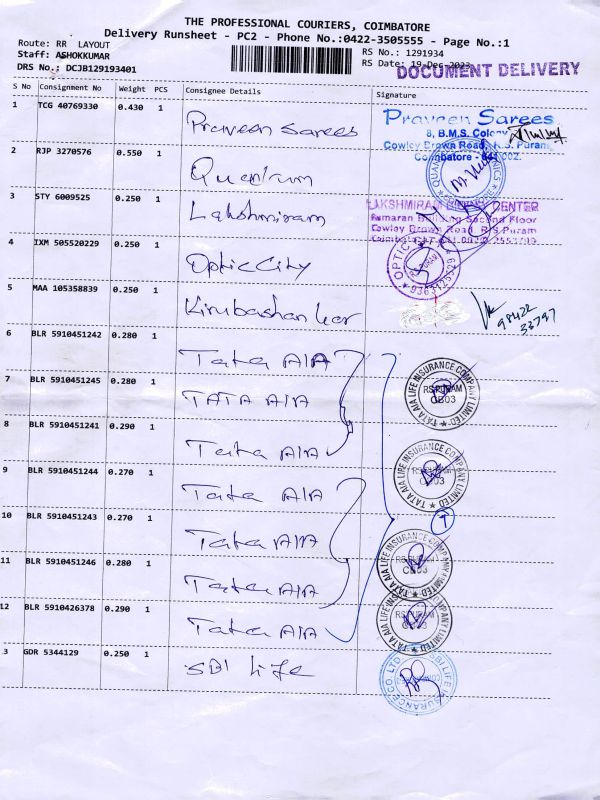 THE PROFESSIONAL COURIERS, COIMBATORE
Delivery Runsheet - PC2 - Phone No.:0422-3505555 - Page No.:1
Route: RR LAYOUT
Staff: ASHOKKUMAR
DRS No.: DCJB129193401
RS No.: 1291934
RS Date: 19-Dec-2023
DOCUMENT DELIVERY
S No Consignment No Weight PCS Consignee Details Signature
1 TCG 40769330 0.430 1 Praveen Sarees
Praveen Sarees
8, B.M.S. Colony
Cowley Brown Road, R.S. Puram,
Coimbatore - 641 002.
2 RJP 3270576 0.550 1 Quantum
3 STY 6009525 0.250 1 Lakshmiram
LAKSHMIRAM CENTER
Kumaran Building Second Floor
Cowley Brown Road R S Puram
4 IXM 505520229 0.250 1 Optic City
OPTIC
5 MAA 105358839 0.250 1 Kirubashankar
98422
33797
6 BLR 5910451242 0.280 1 Tata AIA
TATA AIA LIFE INSURANCE COMPANY LIMITED
RS PURAM
CB03
7 BLR 5910451245 0.280 1 TATA AIA
8 BLR 5910451241 0.290 1 Tata AIA
TATA AIA LIFE INSURANCE COMPANY LIMITED
9 BLR 5910451244 0.270 1 Tata AIA
10 BLR 5910451243 0.270 1 Tata AIA
7
TATA AIA LIFE INSURANCE COMPANY LIMITED
RS PURAM
CB03
11 BLR 5910451246 0.280 1 Tata AIA
12 BLR 5910426378 0.290 1 Tata AIA
TATA AIA LIFE INSURANCE COMPANY LIMITED
3 GDR 5344129 0.250 1 SBI Life
SBI LIFE INSURANCE CO. LTD